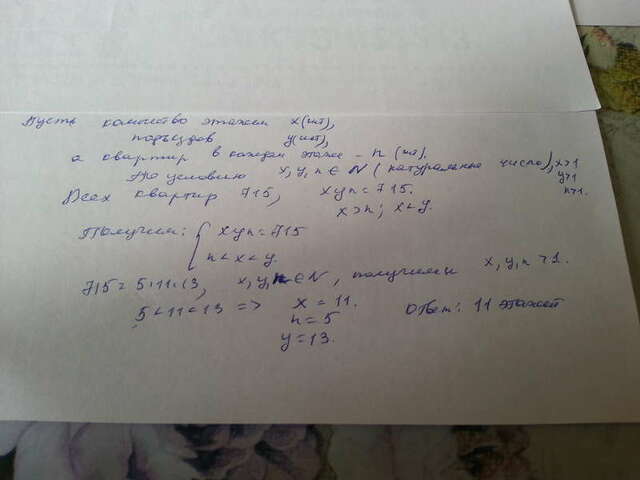 Пусть количество этажей x(шт),
подъездов y(шт),
а квартир в каждом этаже - n (шт).
По условию x, y, n ∈ N (натуральные число), x>1
y>1
n>1.
Всех квартир 715, xyn = 715.
x>n; x<y.
Получим: { xyn = 715
n < x < y.
715 = 5·11·13, x, y, n ∈ N, получим x, y, n >1.
5 < 11 < 13 => x = 11.
n = 5
y = 13.
Ответ: 11 этажей